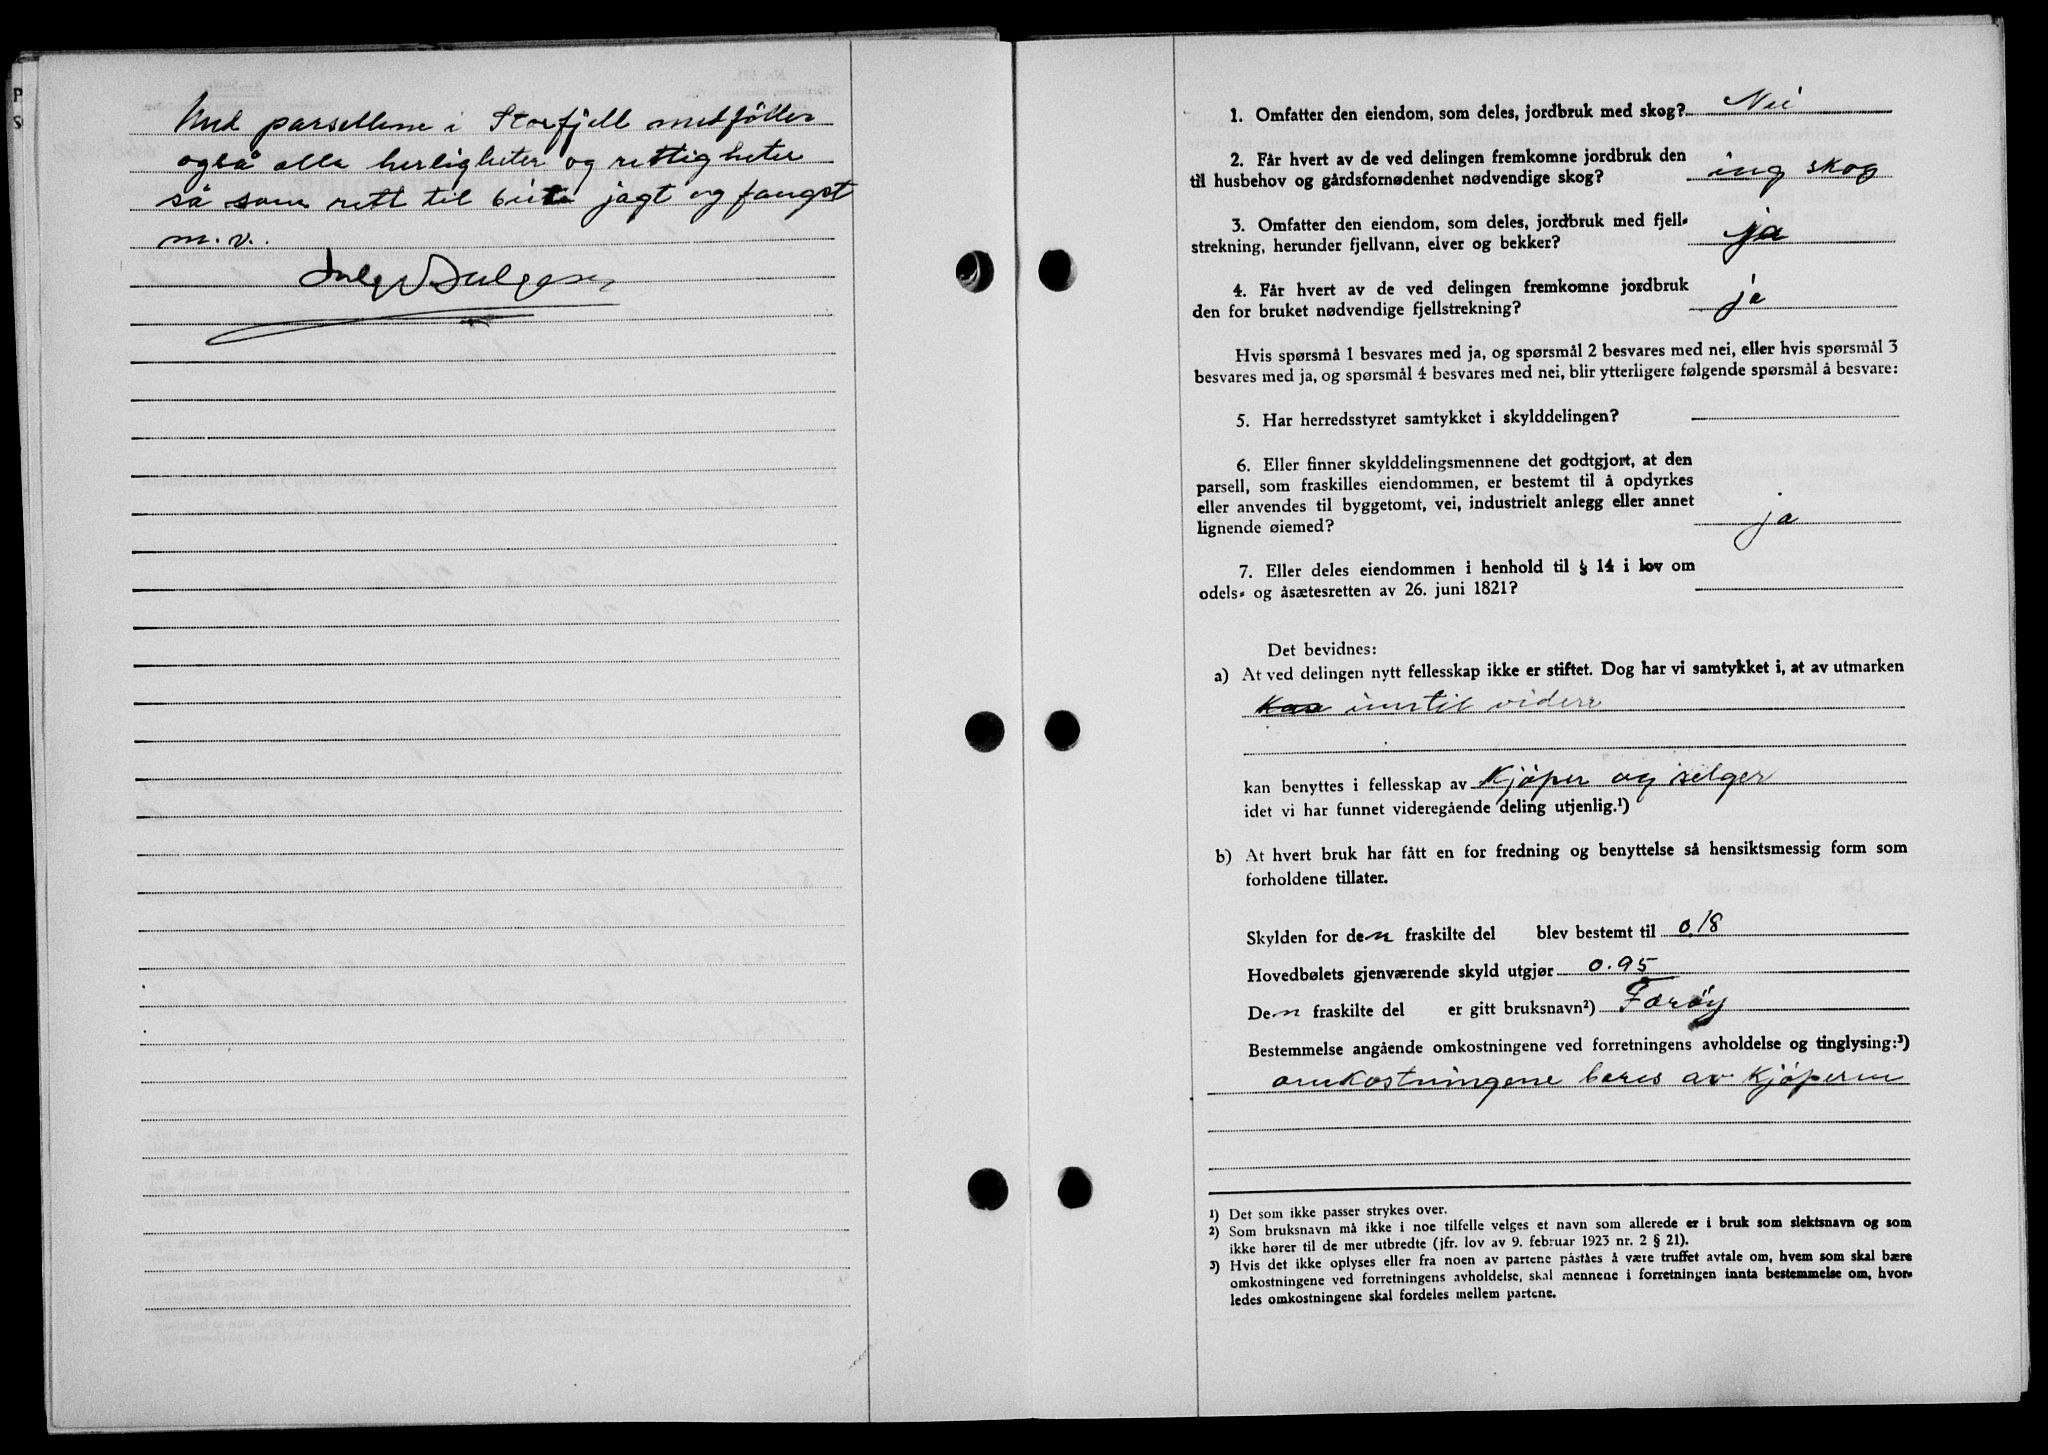 P
S
Med parsellene i Storfjell medfölter
også alle herligheter og rettigheter
så som rett til beite jagt og fangst
m.v.
1. Omfatter den eiendom, som deles, jordbruk med skog? Nei
2. Får hvert av de ved delingen fremkomne jordbruk den
til husbehov og gårdsfornødenhet nødvendige skog? ing skog
3. Omfatter den eiendom, som deles, jordbruk med fjell-
strekning, herunder fjellvann, elver og bekker? ja
4. Får hvert av de ved delingen fremkomne jordbruk
den for bruket nødvendige fjellstrekning? ja
Hvis spørsmå 1 besvares med ja, og spørsmål 2 besvares med nei, eller hvis spørsmål 3
besvares med ja, og spørsmål 4 besvares med nei, blir ytterligere følgende spørsmål å besvare:
5. Har herredsstyret samtykket i skylddelingen?
6. Eller finner skylddelingsmennene det godtgjort, at den
parsell, som fraskilles eiendommen, er bestemt til å opdyrkes
eller anvendes til byggetomt, vei, industrielt anlegg eller annet
lignende øiemed? ja
7. Eller deles eiendommen i henhold til § 14 i lov om
odels- og åsætesretten av 26. juni 1821?
Det bevidnes:
a) At ved delingen nytt fellesskap ikke er stiftet. Dog har vi samtykket i, at av utmarken
inntil videre
kan benyttes i fellesskap av Kjöper og selger
idet vi har funnet videregående deling utjenlig.¹)
b) At hvert bruk har fått en for fredning og benyttelse så hensiktsmessig form som
forholdene tillater.
Skylden for den fraskilte del blev bestemt til 0.18
Hovedbølets gjenværende skyld utgjør 0.95
Den fraskilte del er gitt bruksnavn²) Færöy
Bestemmelse angående omkostningene ved forretningens avholdelse og tinglysing:³)
omkostningene beres av Kjöperen
¹) Det som ikke passer strykes over.
²) Som bruksnavn må ikke i noe tilfelle velges et navn som allerede er i bruk som slektsnavn og som
ikke hører til de mer utbredte (jfr. lov av 9. februar 1923 nr. 2 § 21).
³) Hvis det ikke oplyses eller fra noen av partene påståes å være truffet avtale om, hvem som skal bære
omkostningene ved forretningens avholdelse, skal mennene i forretningen innta bestemmelse om, hvor-
ledes omkostningene skal fordeles mellem partene.